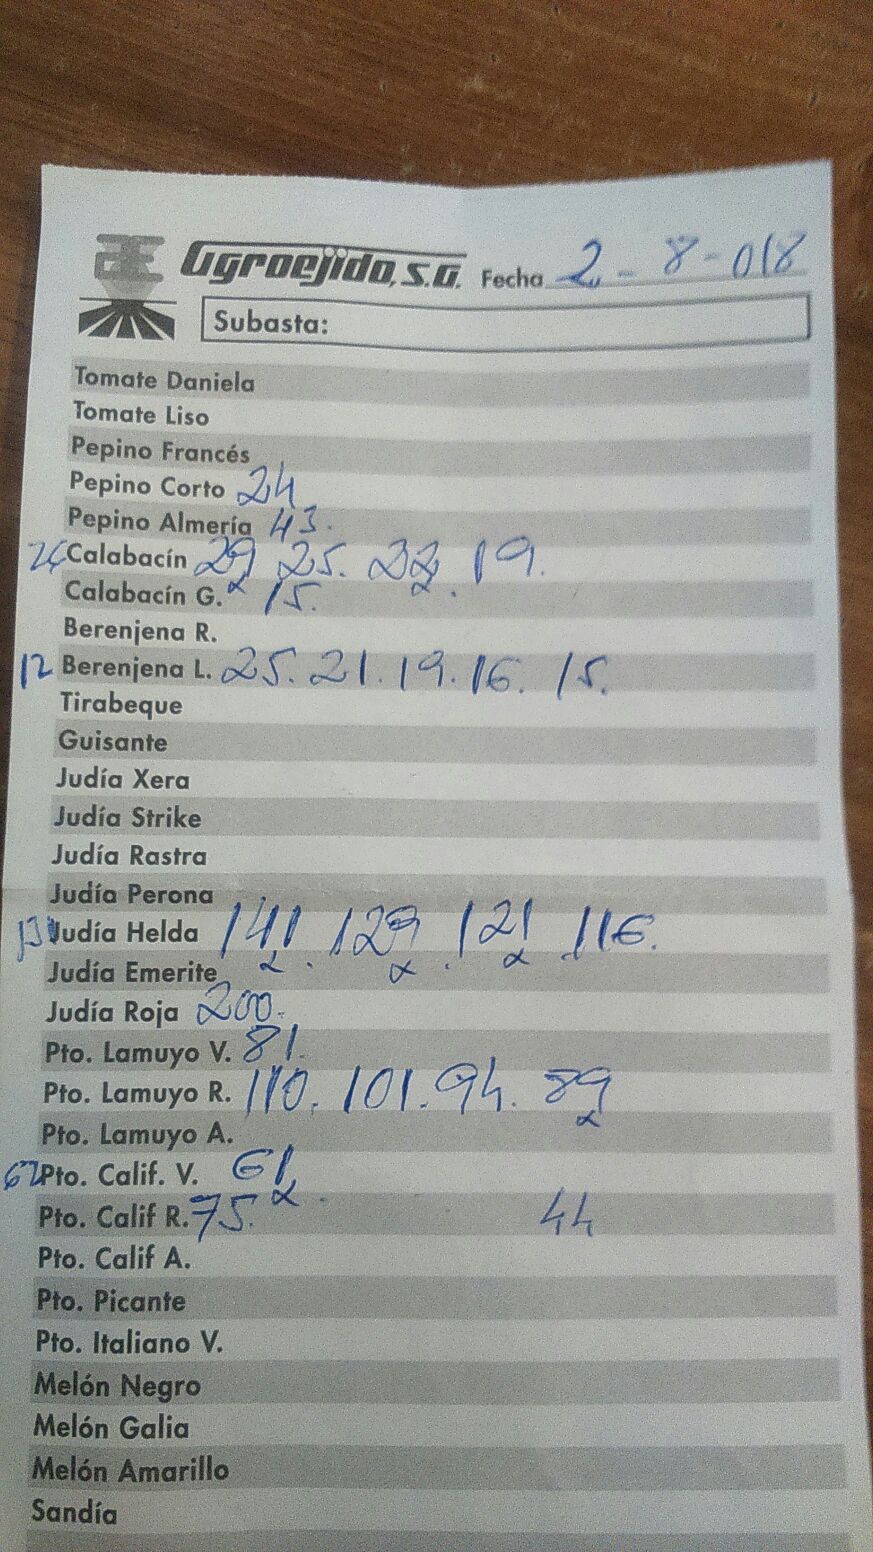 Agroejido, S.A. Fecha 2-8-018
Subasta:
Tomate Daniela
Tomate Liso
Pepino Francés
Pepino Corto 24
Pepino Almería 43.
Calabacín 29 25. 22. 19.
Calabacín G. 15.
Berenjena R.
12 Berenjena L. 25. 21. 19. 16. 15.
Tirabeque
Guisante
Judía Xera
Judía Strike
Judía Rastra
Judía Perona
Judía Helda 141. 129. 121. 116.
Judía Emerite
Judía Roja 200.
Pto. Lamuyo V. 81.
Pto. Lamuyo R. 110. 101. 94. 89
Pto. Lamuyo A.
62 Pto. Calif. V. 61.
Pto. Calif R. 75. 44
Pto. Calif A.
Pto. Picante
Pto. Italiano V.
Melón Negro
Melón Galia
Melón Amarillo
Sandía